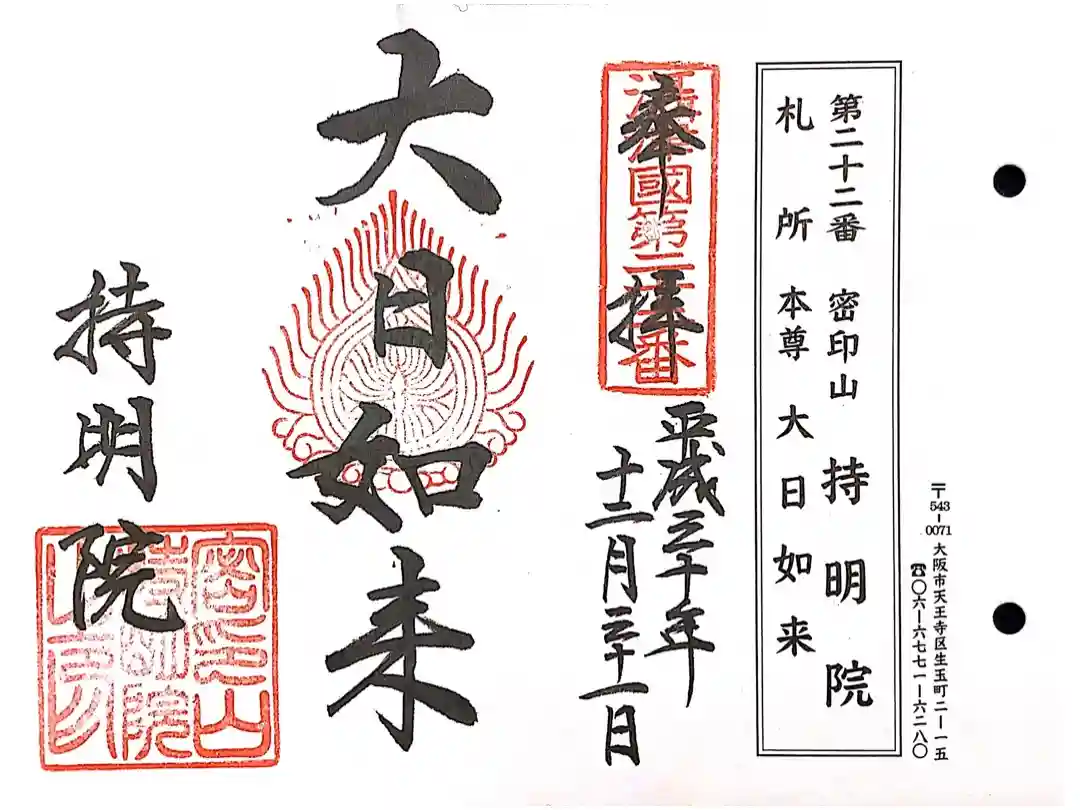 〒543-0071 大阪市天王寺区生玉町二ー一五
☎〇六ー六七七一ー六二八〇
第二十二番 密印山 持明院
札所本尊 大日如来
奉拝
國第二十二番
平成三十年
十二月三十一日
大日如来
持明院
密印山
持明院
之印